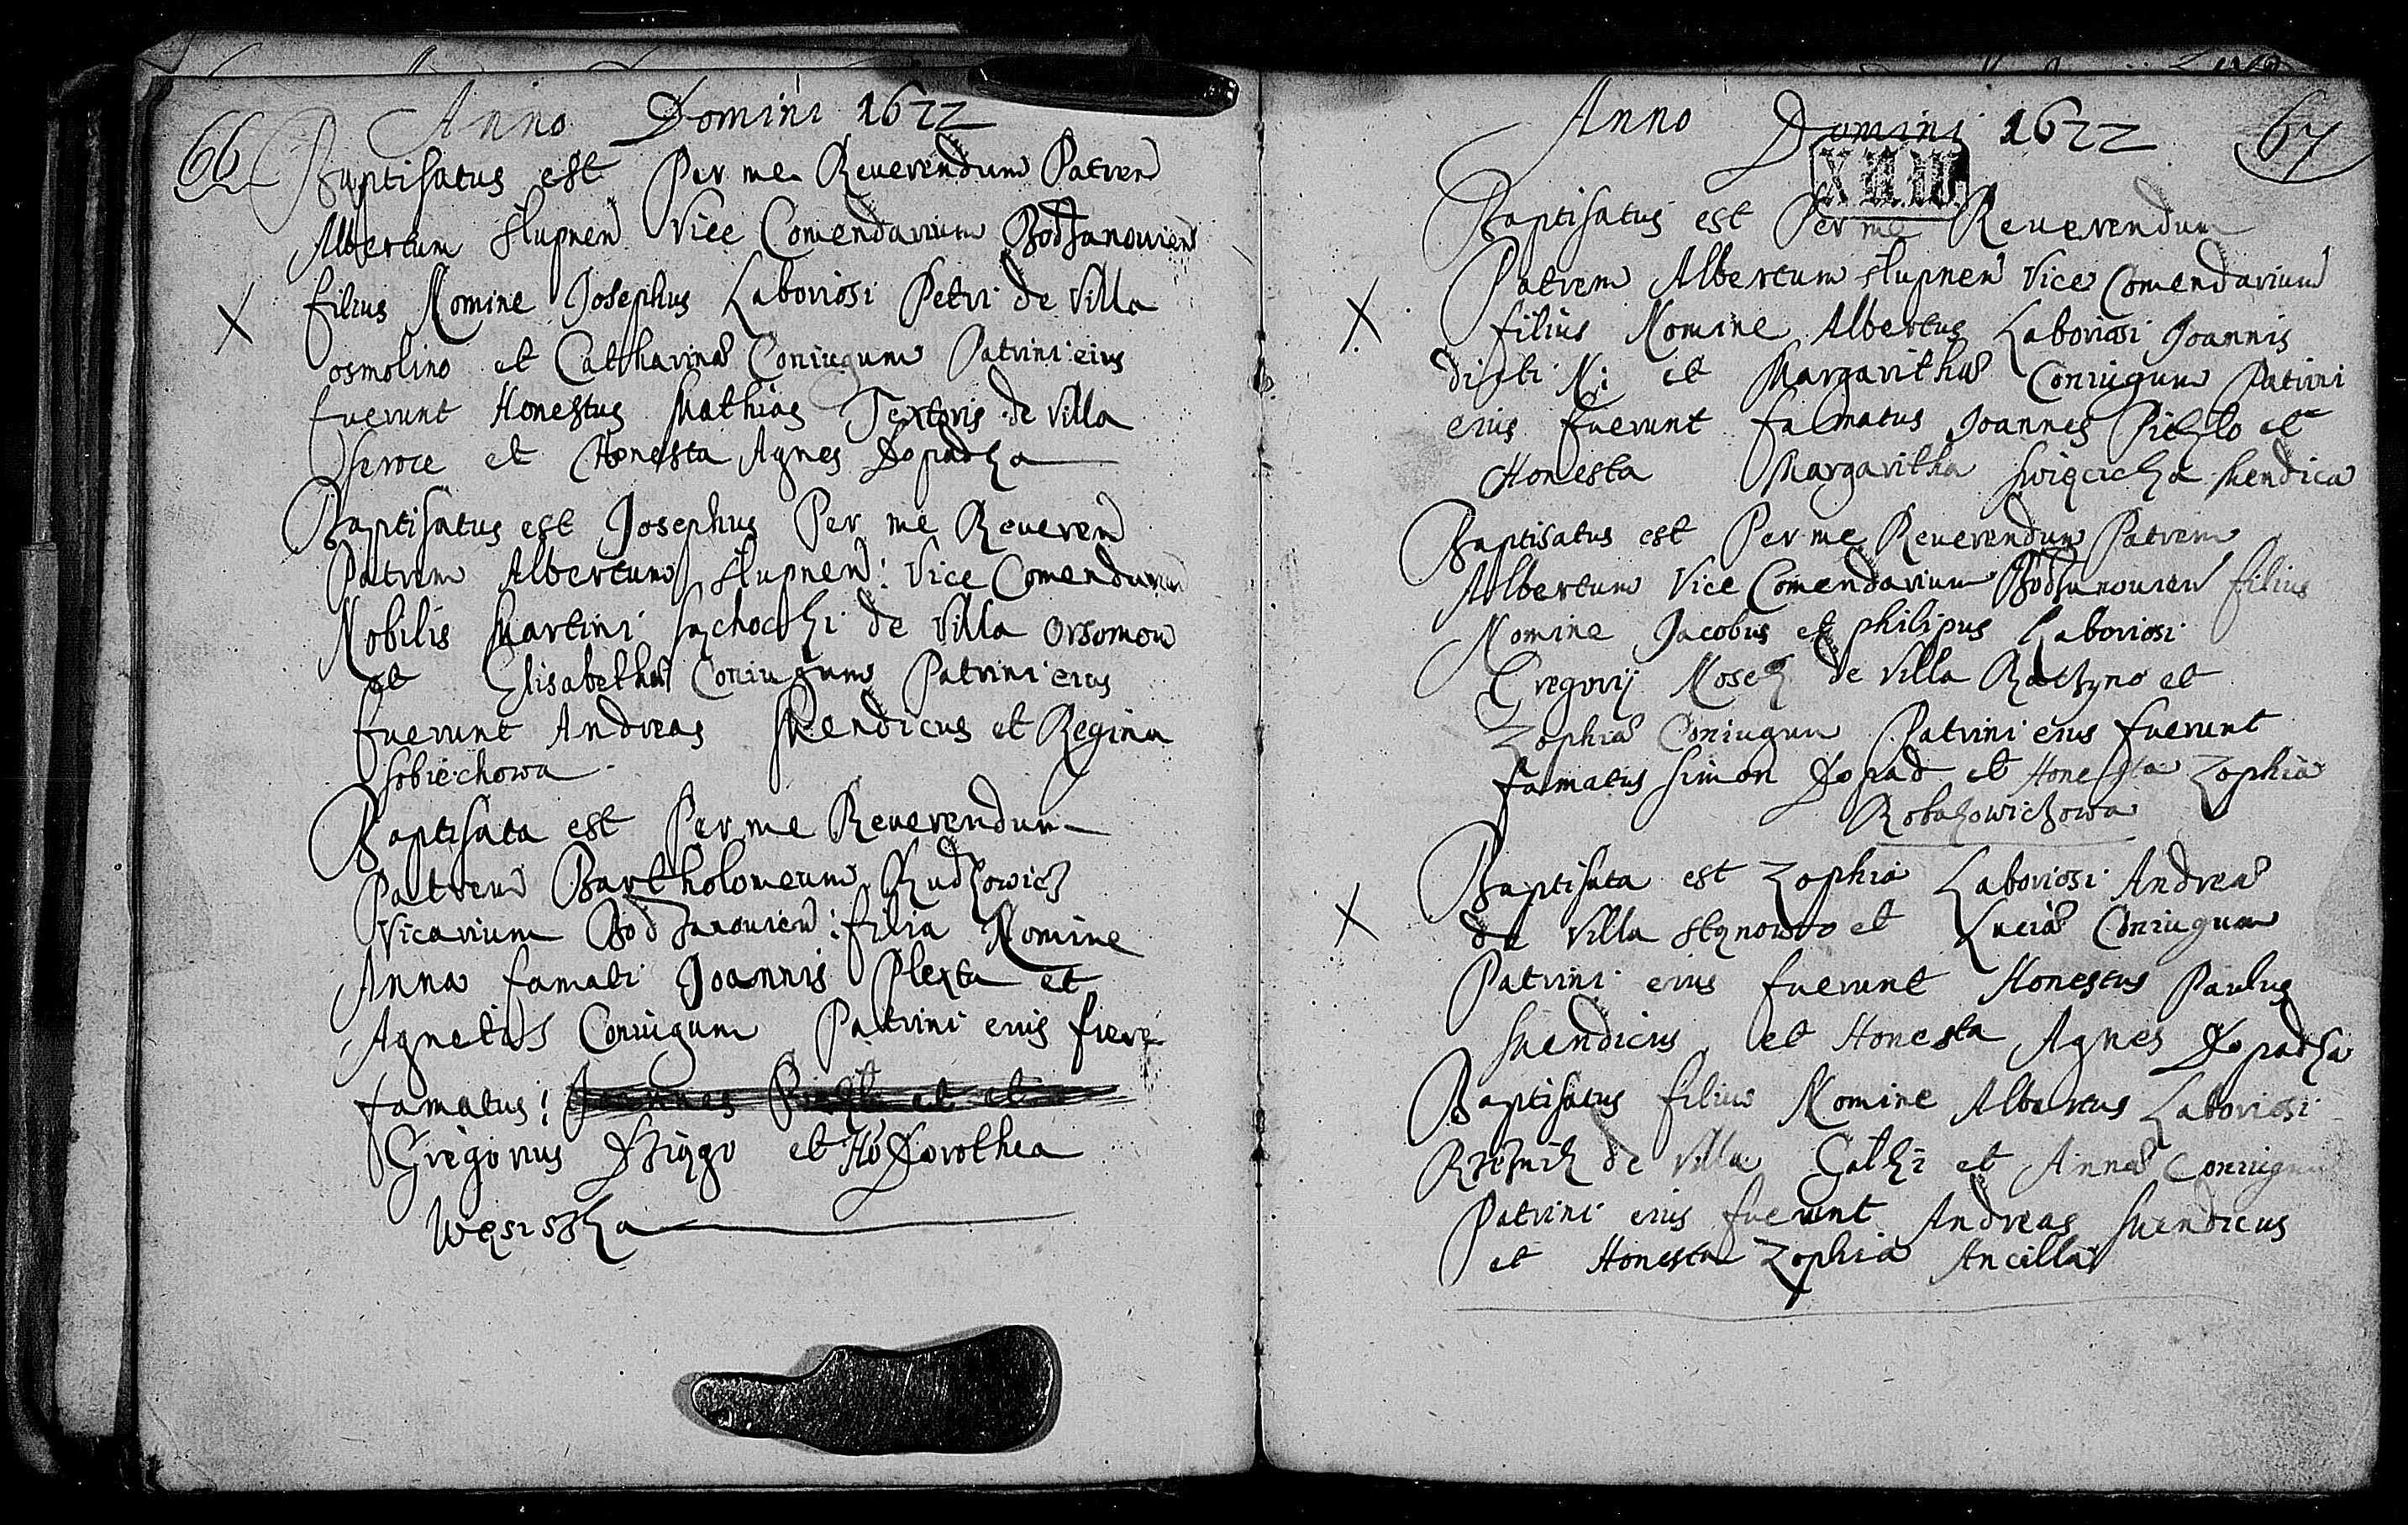 66
Anno Domini 1622
Baptisatus est Per me Reuerendum Patrem
Albertum Slupnen Vice Comendarium Bodzanouien
X filius Nomine Josephus Laboriosi Petri de Villa
osmolino et Catharinae Coniugum Patrini eius
fuerunt Honestus Mathias Textoris de Villa
et Honesta Agnes Dopadka
Baptisatus est Josephus Per me Reueren
Patrem Albertum Slupnen: Vice Comendarium
Nobilis Martini de Villa Orsomow
et Elisabethae Coniugum Patrini eius
fuerunt Andreas Mendicus et Regina
Sobiechowa
Baptisata est Per me Reuerendum
Patrem Bartholomeum Rudkowicz
Vicarium Bodzanouien: filia Nomine
Anna famati Joannis Plexta et
Agnetis Coniugum Patrini eius fuere
famatus: Joannes et et
Gregorius et Ho Dorothea

Anno Domini 1622
67
Baptisatus est Per me Reuerendum
Patrem Albertum Slupnen Vice Comendarium
X filius Nomine Albertus Laboriosi Joannis
dicti Ni et Margarithae Coniugum Patrini
eius fuerunt famatus Joannes et
Honesta Margaritha Swięcicka Mendica
Baptisatus est Per me Reuerendum Patrem
Albertum Vice Comendarium Bodzanouien filius
Nomine Jacobus et philipus Laboriosi
Gregorij Nosek de Villa et
Zophiae Coniugum Patrini eius fuerunt
famatus Simon Dopad et Honesta Zophia
Robakowiczowa
Baptisata est Zophia Laboriosi Andreae
X de Villa et Luciae Coniugum
Patrini eius fuerunt Honestus Paulus
Mendicus et Honesta Agnes Dopadka
Baptisatus filius Nomine Albertus Laboriosi
de Villa Galki et Annae Coniugum
Patrini eius fuerunt Andreas Mendicus
et Honesta Zophia Ancilla